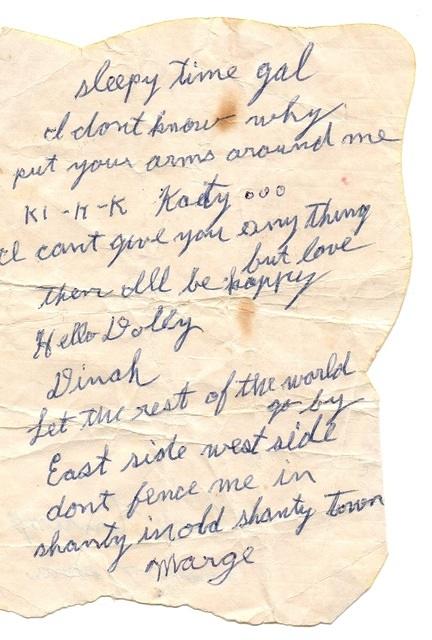 sleepy time gal
I dont know why
put your arms around me
KI-K-K Katy ooo
I cant give you any thing
but love
then Ill be happy
Hello Dolly
Dinah
Let the rest of the world
go by
East side west side
dont fence me in
shanty in old shanty town
Marge